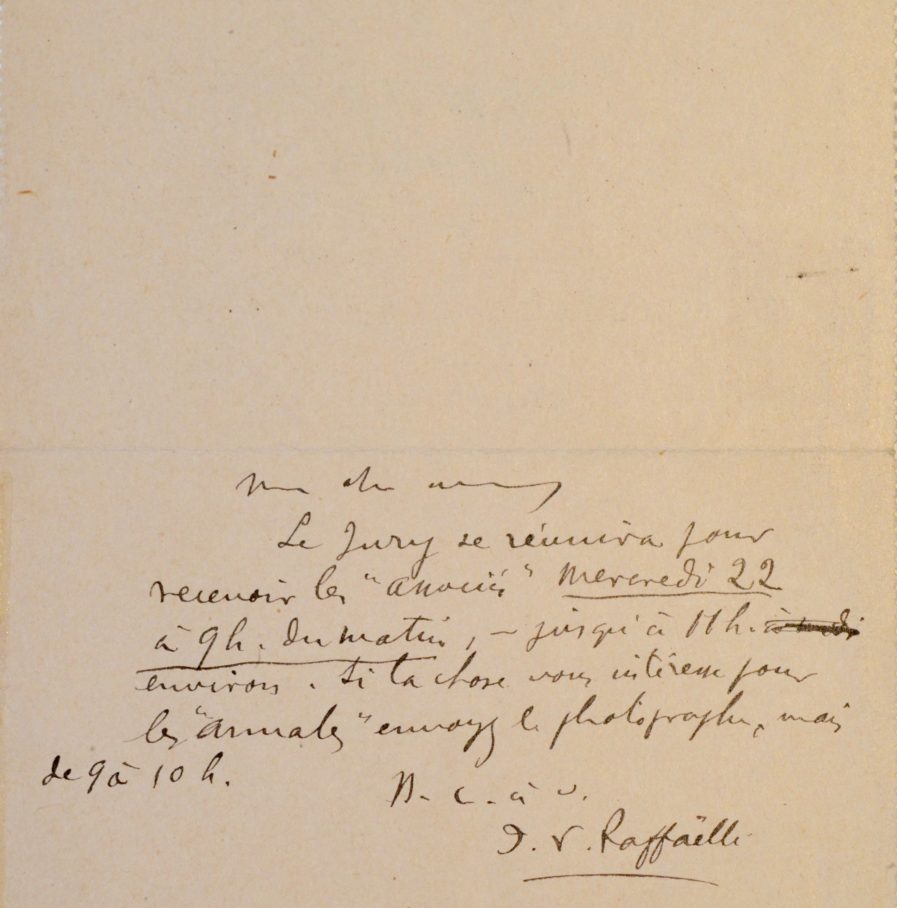 Mon cher ami
Le Jury se réunira pour
recevoir les "associés" Mercredi 22
à 9 h. du matin, – jusqu'à 11 h.
environ. Si la chose vous intéresse pour
les "annales" envoyez le photographe, mais
de 9 à 10 h.
B. c. à v.
J. F. Raffaëlli